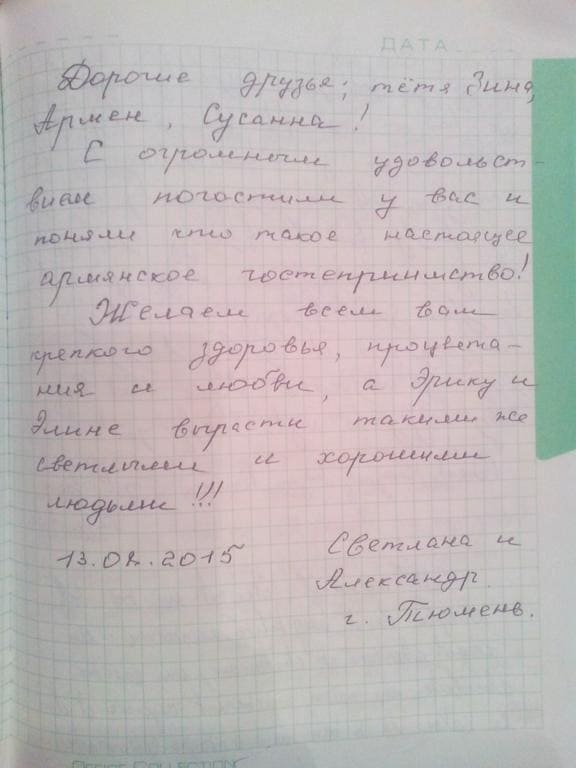 ДАТА
Дорогие друзья; тётя Зина,
Армен, Сусанна!
С огромным удовольст-
вием погостили у вас и
поняли что такое настоящее
армянское гостеприимство!
Желаем всем вам
крепкого здоровья, процвета-
ния и любви, а Эрику и
Элине вырасти такими же
светлыми и хорошими
людьми!!!
2015
Светлана и
Александр.
г. Тюмень.
OFFICE COLLECTION